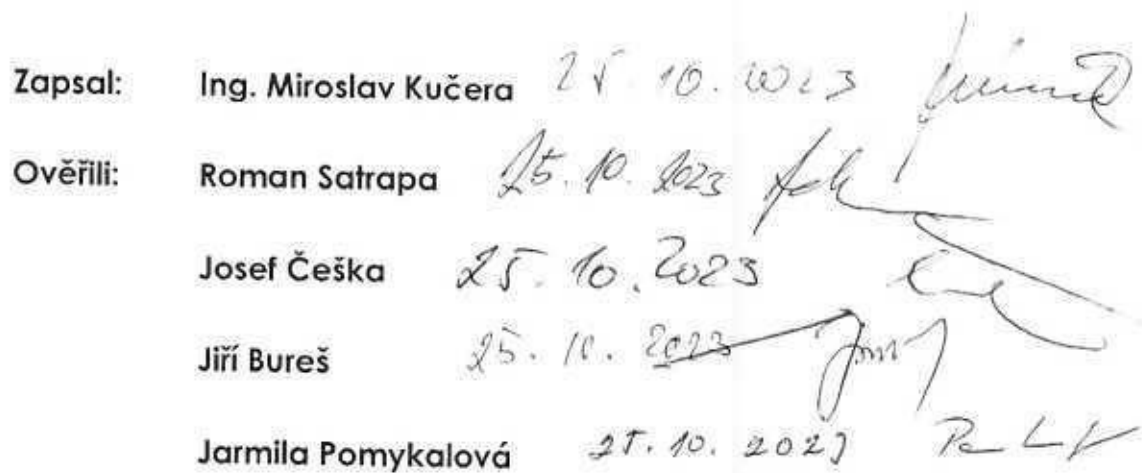 Zapsal: Ing. Miroslav Kučera 25. 10. 2023
Ověřili: Roman Satrapa 25. 10. 2023
Josef Češka 25. 10. 2023
Jiří Bureš 25. 10. 2023
Jarmila Pomykalová 25. 10. 2023